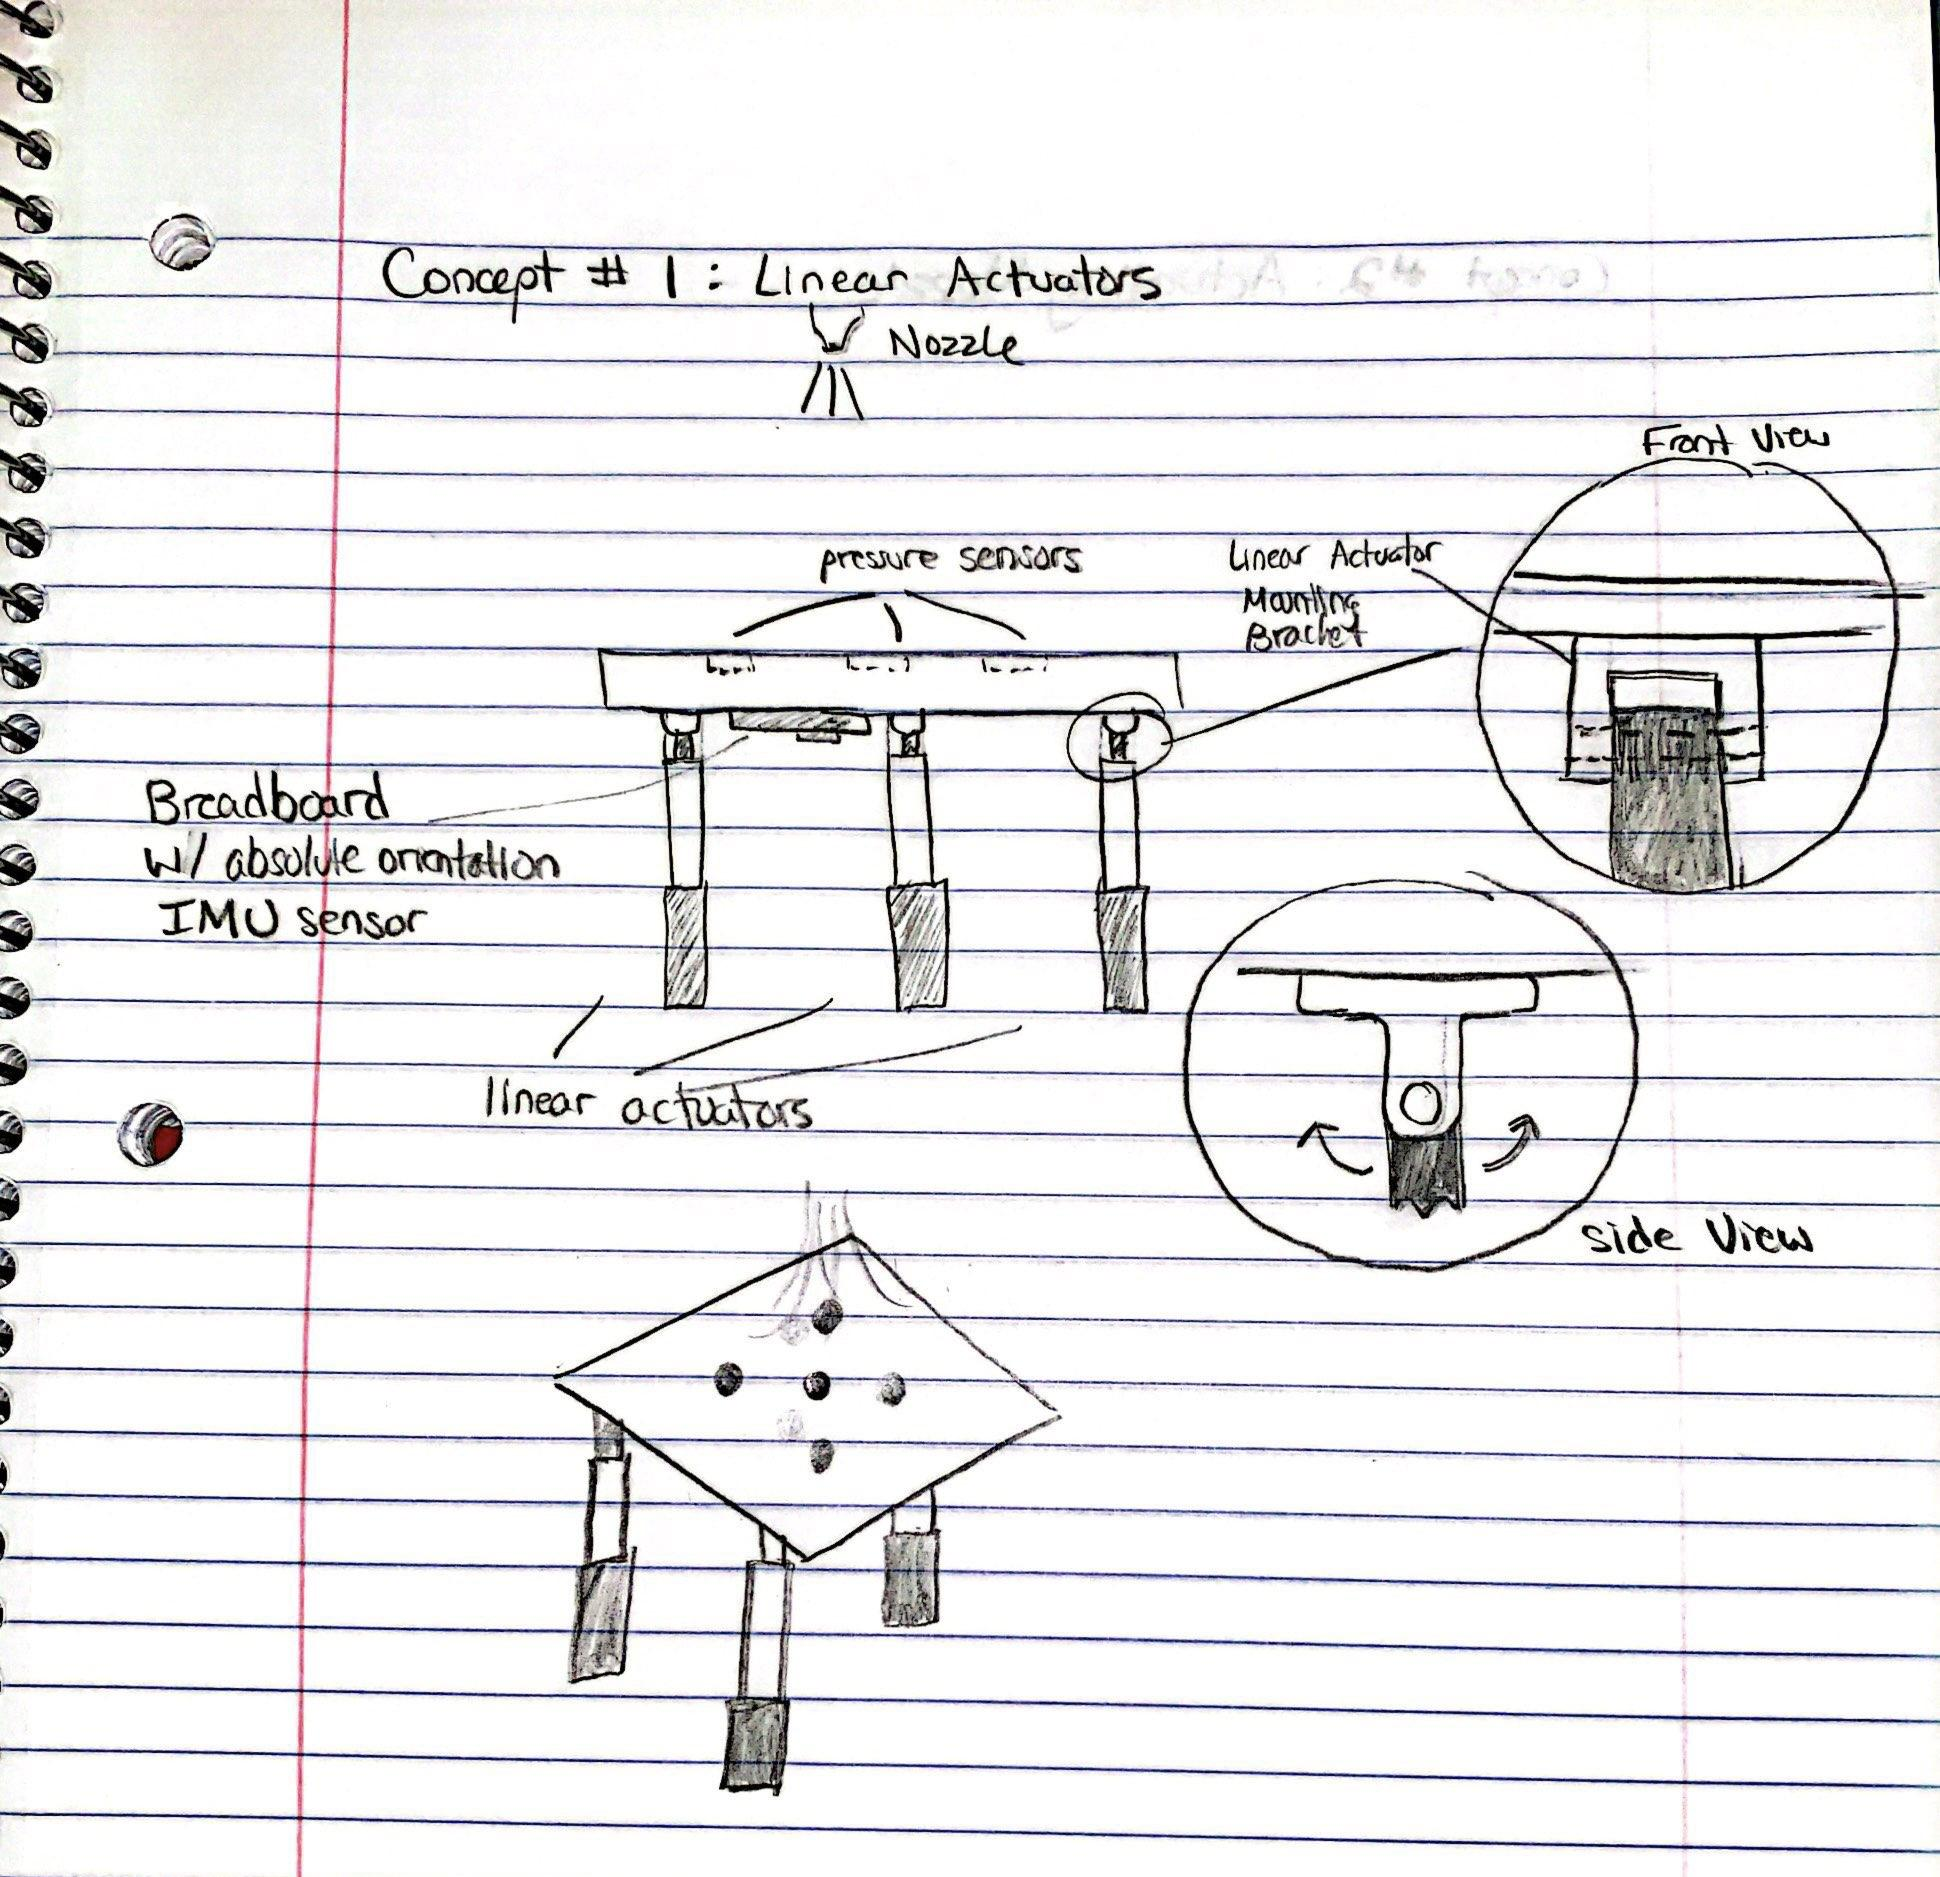 Concept # 1 : Linear Actuators
Nozzle
Front View
pressure sensors
Linear Actuator
Mounting
Bracket
Breadboard
w/ absolute orientation
IMU sensor
linear actuators
side View